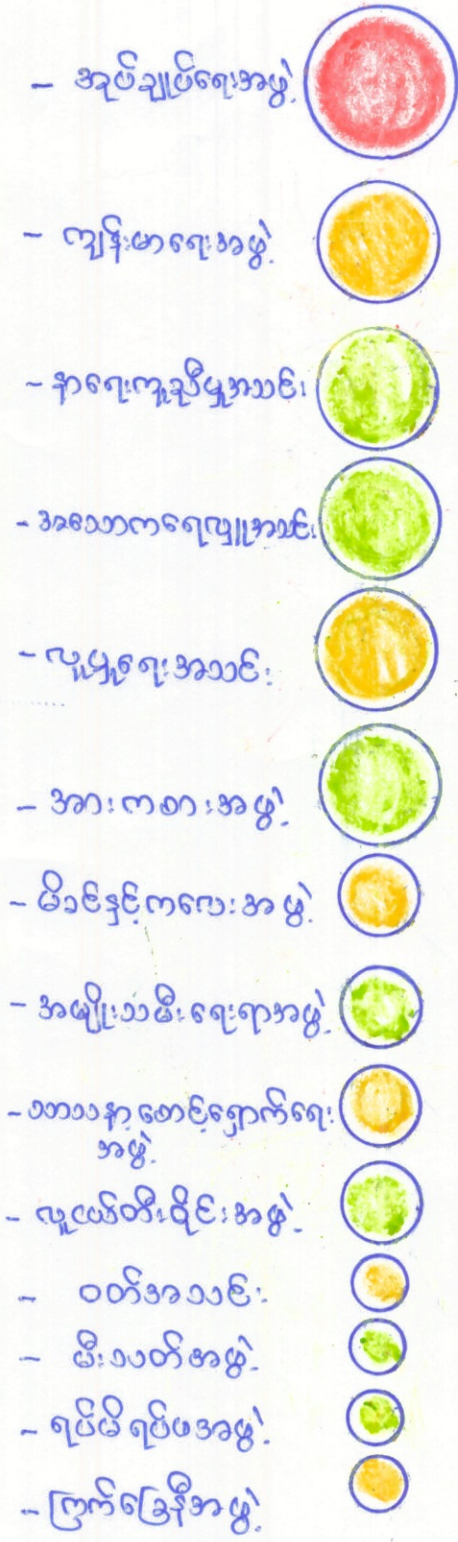 - အုပ်ချုပ်ရေးအဖွဲ့
- ကျန်းမာရေးအဖွဲ့
- နာရေးကူညီမှုအသင်း
- အသောကရေလှူအသင်း
- လူမှုရေးအသင်း
- အားကစားအဖွဲ့
- မိခင်နှင့်ကလေးအဖွဲ့
- အမျိုးသမီးရေးရာအဖွဲ့
- သာသနာ့စောင့်ရှောက်ရေး
အဖွဲ့
- လူငယ်တီးဝိုင်းအဖွဲ့
- ဝတ်အသင်း
- မီးသတ်အဖွဲ့
- ရပ်မိရပ်ဖအဖွဲ့
- ကြက်ခြေနီအဖွဲ့